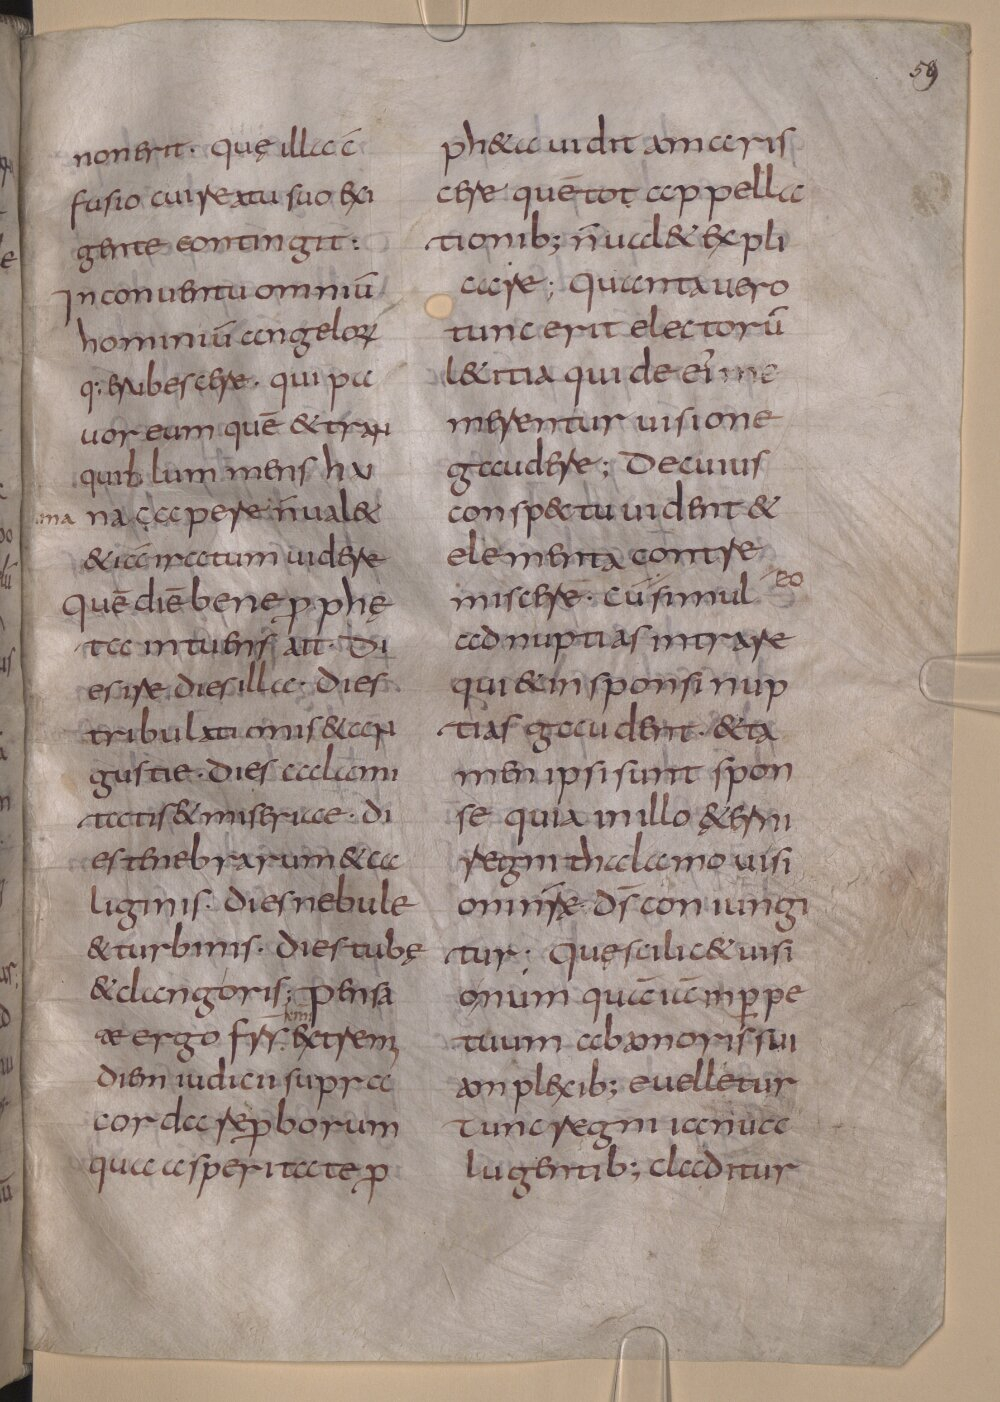 58
non erit. Quę illa c̄
fusio cui reatu suo exi
gente contingit:
In conuentu omniū
hominiū angeloꝝ
q; erubescere. qui pa
uor eum quē & tran
quillum mens hu
ma
na capere n̄ual&
& iā iratum uidere
Quē diē bene p̱phę
ta intuens ait. Di
es irę dies illa. dies
tribulationis & an
gustie. dies calami
tatis & miserięe. di
es tenebrarum & ca
liginis. dies nebule
& turbinis. dies tubę
& clangoris; Pensa
te ergo frs̄. extrem;
diem iudicii supra
corda reꝓborum
qua asperitate ꝓ
ph&a uidit amaris
cere quē tot appella
tionib; n̄ ual& expli
care; Quanta uero
tunc erit electorū
l&itia qui de ei'
merentur uisione
gaudere; De cuius
conspectu uident &
elementa contre
miscere. Cū simul eo
ad nuptias intrare
qui & in sponsi nup
tias gaudent. & ta
men ipsi sunt spon
se quia in illo &erni
regni thalamo uisi
oni nr̄e. ds̄ coniungi
tur; Quę scilic& uisi
onum quā iā inꝑpe
tuum ab amoris sui
amplexib; euelletur
Tunc regni ianua
lugentib; claditur